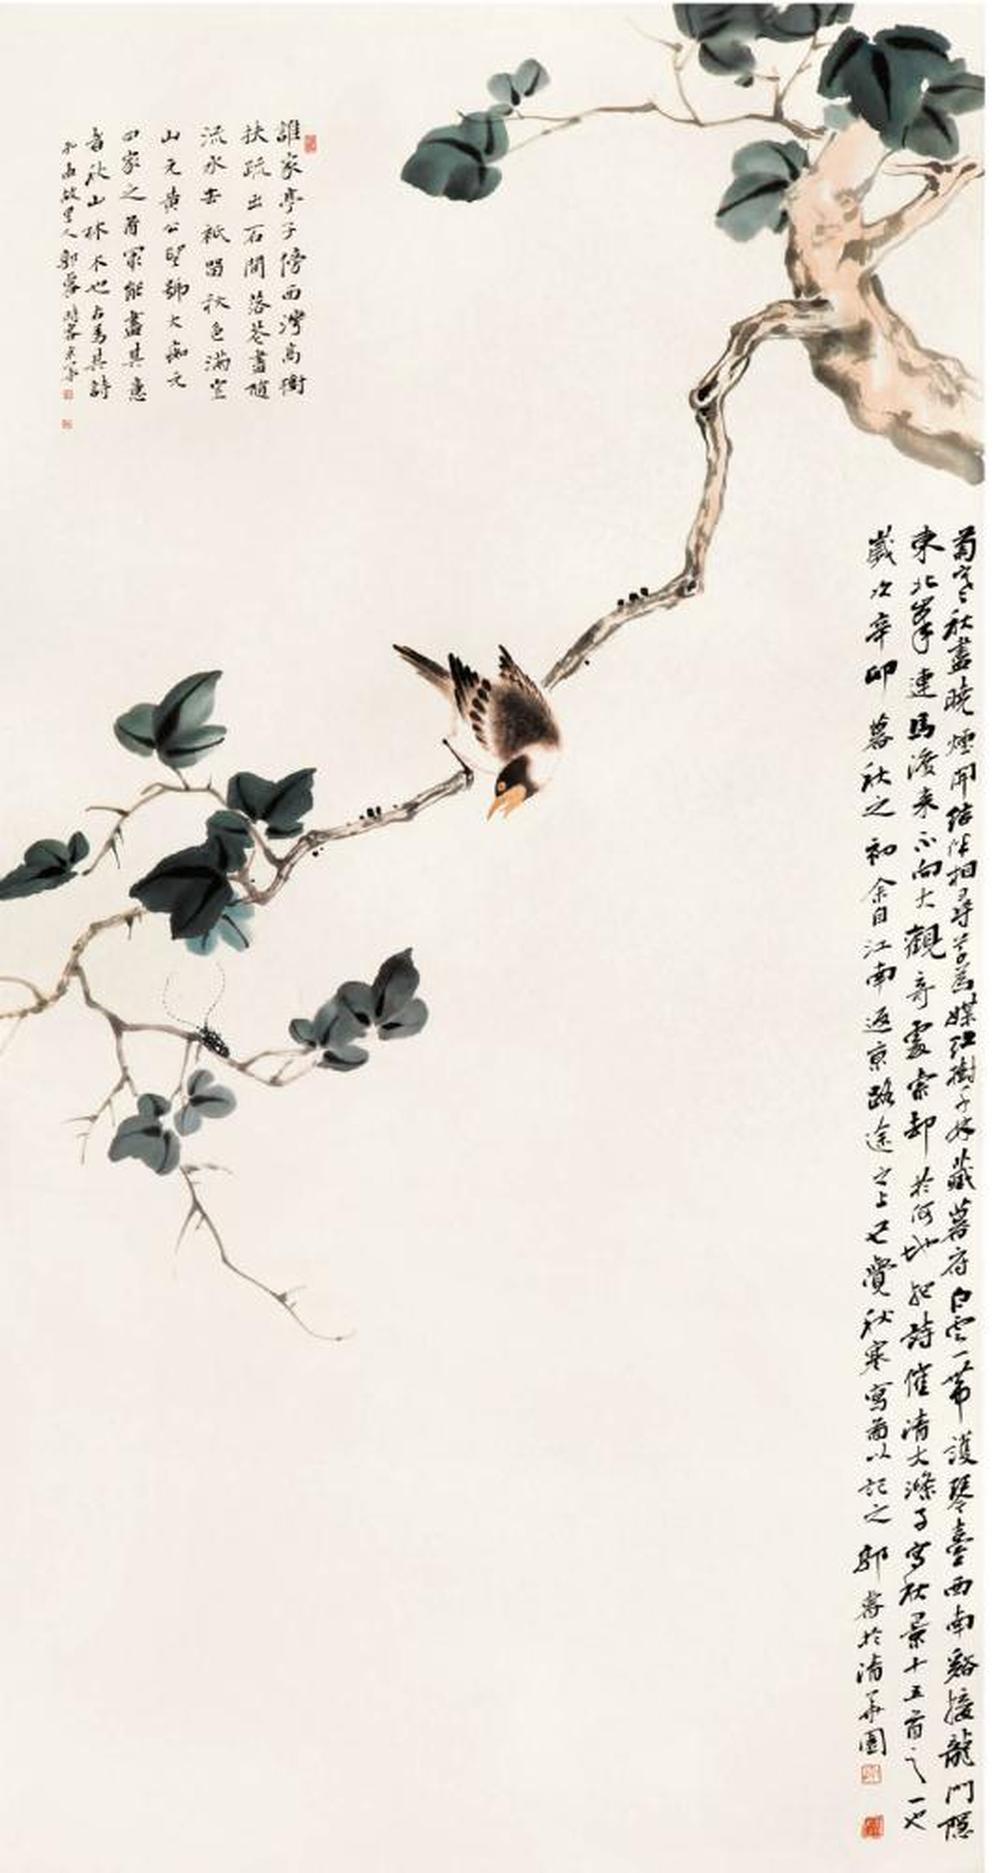 誰家亭子傍西灣高樹
扶疏出石間落葉盡隨
流水去祇留秋色滿空
山元黃公望號大痴元
四家之首眾能盡其意
者秋山林木也占為其詩
郭
菊 秋盡曉煙開結伴相尋 為媒紅樹子 藏暮府白雲一帶護琴臺西南谿接龍門隱
東北峯連馬渡來不向大觀奇處索卻於何地起詩催清大滌子寫秋景十五首之一也
歲次辛卯暮秋之初余自江南返京路途之上已覺秋寒寫圖以記之郭睿於清華園